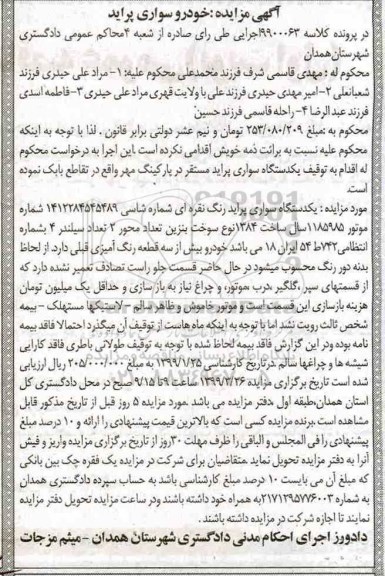 آگهی مزایده :خودرو سواری پراید
در پرونده کلاسه ۹۹۰۰۰۶۳اجرایی طی رای صادره از شعبه ۴محاکم عمومی دادگستری
شهرستان همدان
محکوم له : مهدی قاسمی شرف فرزند محمدعلی محکوم علیه: ۱- مراد علی حیدری فرزند
شعبانعلی ۲-امیر مهدی حیدری فرزند علی با ولایت قهری مراد علی حیدری ۳-فاطمه اسدی
فرزند عبدالرضا ۴- راحله قاسمی فرزند حسین
محکوم به مبلغ ۲۵۳/۰۸۰/۲۰۹ تومان و نیم عشر دولتی برابر قانون . لذا با توجه به اینکه
محکوم علیه نسبت به برائت ذمه خویش اقدامی نکرده است .این اجرا به درخواست محکوم
له اقدام به توقیف یکدستگاه سواری پراید مستقر در پارکینگ مهر واقع در تقاطع بابک نموده
است.
مورد مزایده : یکدستگاه سواری پراید رنگ نقره ای شماره شاسی ۱۴۱۲۲۸۴۵۴۵۴۸۹ شماره
موتور ۱۱۸۵۹۸۵سال ساخت ۱۳۸۴نوع سوخت بنزین تعداد محور ۲ تعداد سیلندر ۴ بشماره
انتظامی۷۴۲ط ۵۴ ایران ۱۸ می باشد خودرو بیش از سه قطعه رنگ آمیزی قبلی دارد. از لحاظ
بدنه دور رنگ محسوب میشود در حال حاضر قسمت جلو راست تصادف تعمیر نشده دارد که
از قسمتهای سپر ،گلگیر ،درب ،موتور، و چراغ نیاز به باز سازی و حداقل یک میلیون تومان
هزینه بازسازی این قسمت است و موتور خاموش و ظاهر سالم -لاستیکها مستهلک - بیمه
شخص ثالث رویت نشد اما با توجه به اینکه ماه هاست از توقیف آن میگذرد احتمالا فاقد بیمه
نامه بوده ودر این گزارش فاقد بیمه لحاظ شده با توجه به توقیف طولانی باطری فاقد کارایی
شیشه ها و چراغها سالم .درتاریخ کارشناسی ۱۳۹۹/۱/۲۵ به مبلغ ۲۰۵/۰۰۰/۰۰۰ ریال ارزیابی
شده است تاریخ برگزاری مزایده ۱۳۹۹/۲/۲۶ ساعت ۹تا ۹/۱۵ صبح در محل دادگستری کل
استان همدان،طبقه اول ،دفتر مزایده می باشد .مورد مزایده ۵ روز قبل از تاریخ مذکور قابل
مشاهده است .برنده مزایده کسی است که بالاترین قیمت پیشنهادی را ارائه و ۱۰ درصد مبلغ
پیشنهادی را فی المجلس و الباقی را ظرف مهلت ۳۰روز از تاریخ برگزاری مزایده واریز و فیش
آنرا به دفتر مزایده تحویل نماید .متقاضیان برای شرکت در مزایده یک فقره چک بین بانکی
که مبلغ آن می بایست ۱۰ درصد مبلغ کارشناسی باشد به حساب سپرده دادگستری همدان
به شماره ۲۱۷۱۲۹۵۷۷۶۰۰۳به همراه خود داشته باشند ودر ساعت مزایده تحویل دفتر مزایده
نمایند تا اجازه شرکت در مزایده داشته باشند .
دادورز اجرای احکام مدنی دادگستری شهرستان همدان - میثم مزجات